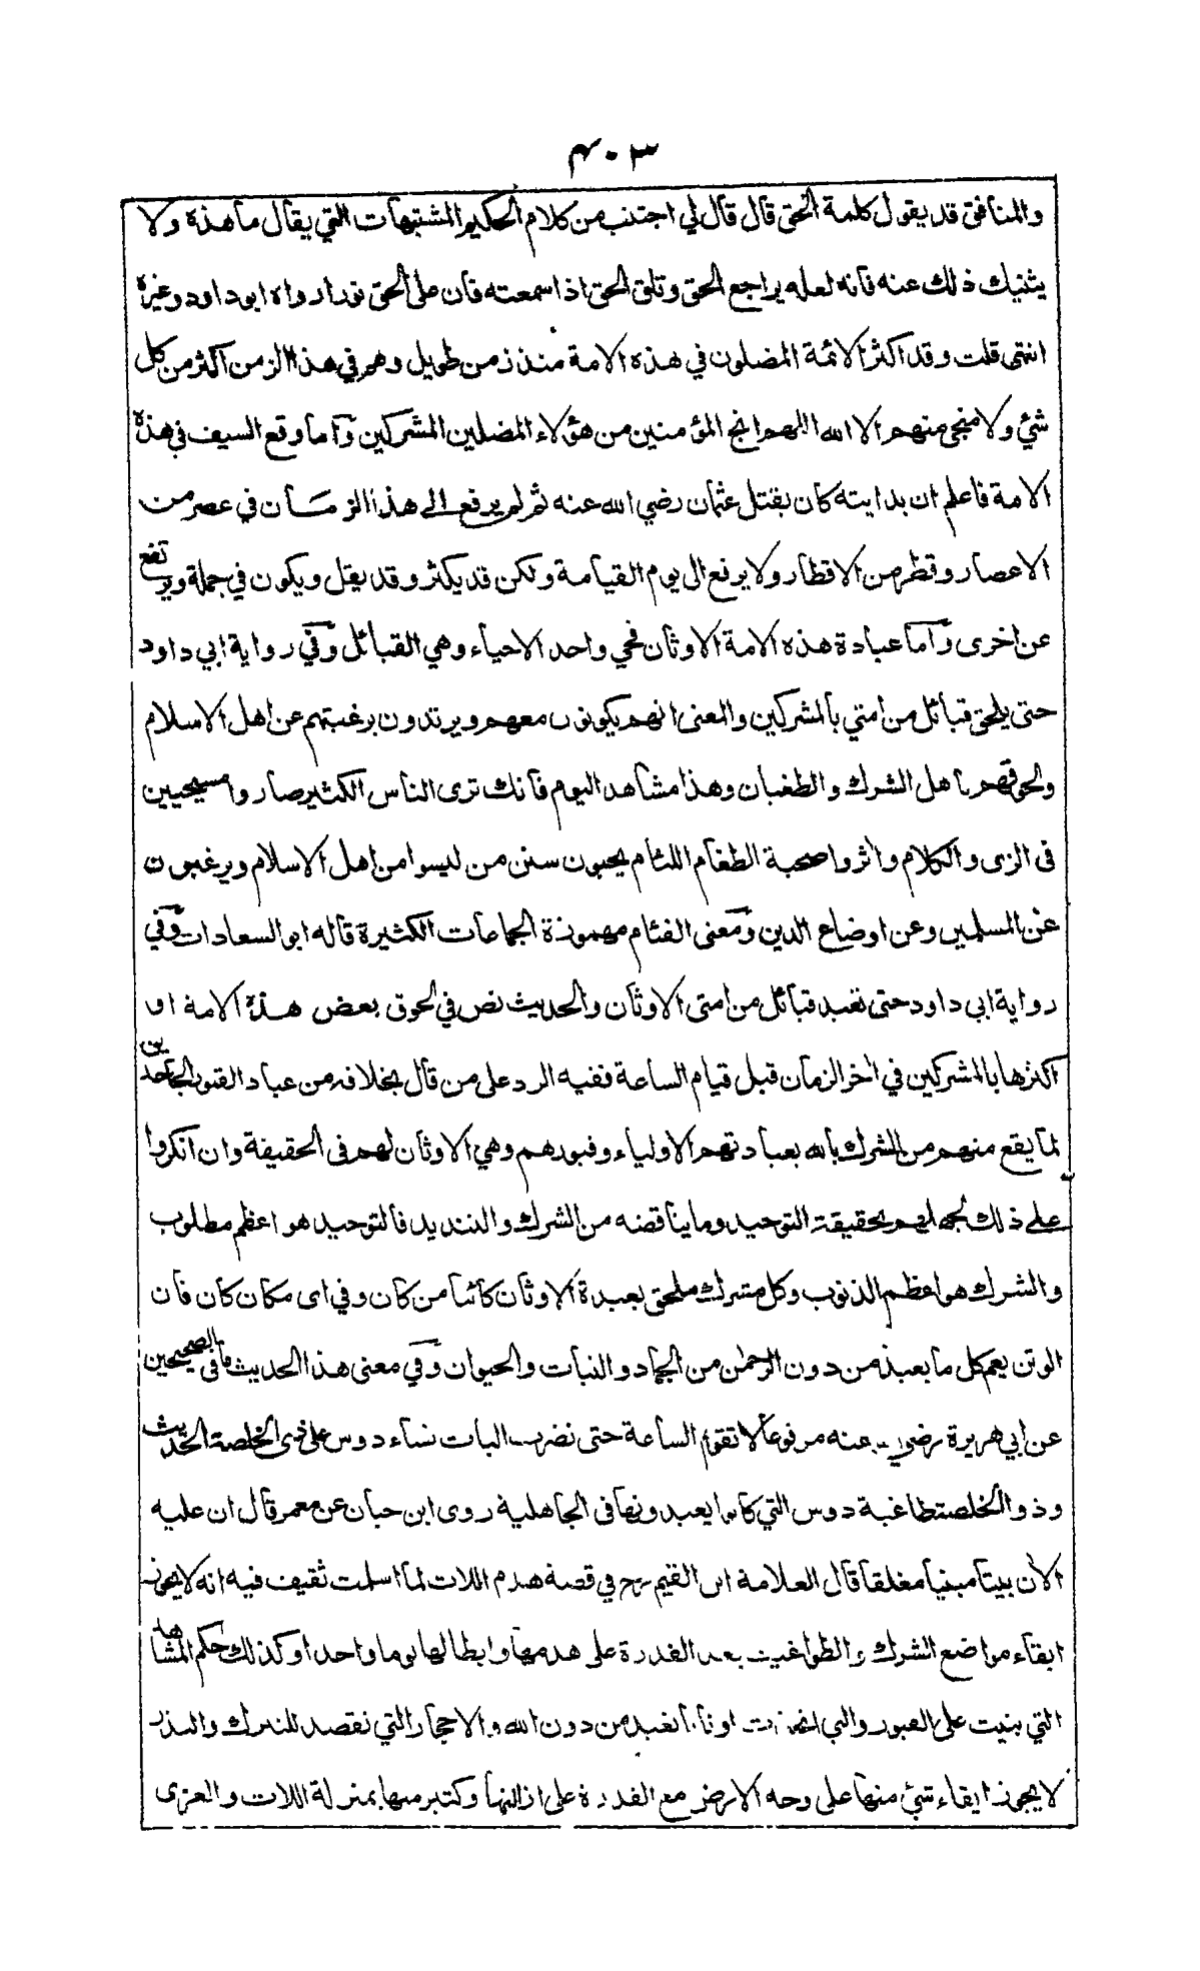 ٤٠٣
والمنافق قد يقول كلمة الحق قال قال لي اجتنب من كلام الحكيم المشتبهات التي يقال ما هذه ولا
يثنيك ذلك عنه فانه لعله يراجع الحق وتلق الحق اذا سمعته فان على الحق نورا رواه ابو داود وغيره
انتهى قلت وقد اكثر الائمة المضلون في هذه الامة منذ زمن طويل وهم في هذا الزمن اكثر من كل
شئ ولا منجى منهم الا الله اللهم انج المؤمنين من هؤلاء المضلين المشركين وآما وقع السيف في هذه
الامة فاعلم ان بدايته كان بقتل عثمان رضي الله عنه ثم لم يرفع الى هذا الزمان في عصر من
الاعصار وقطر من الاقطار ولا يرفع الى يوم القيامة ولكن قد يكثر وقد يقل ويكون في جملة ويرتفع
عن اخرى وآما عبادة هذه الامة الاوثان فحي واحد الاحياء وهي القبائل وفي رواية ابي داود
حتى يلحق قبائل من امتي بالمشركين والمعنى انهم يكونون معهم ويرتدون برغبتهم عن اهل الاسلام
ولحوقهم باهل الشرك والطغيان وهذا مشاهد اليوم فانك ترى الناس الكثير صاروا مسيحيين
فى الزى والكلام واثروا صحبة الطغام اللئام يحبون سنن من ليسوا من اهل الاسلام ويرغبون
عن المسلمين وعن اوضاع الدين ومعنى الفئام مهموزة الجماعات الكثيرة قاله ابو السعادات وفي
رواية ابي داود حتى تعبد قبائل من امتى الاوثان والحديث نص في لحوق بعض هذه الامة او
اكثرها بالمشركين في اخر الزمان قبل قيام الساعة ففيه الرد على من قال بخلافه من عباد القبور الجاحدين
لما يقع منهم من الشرك بالله بعبادتهم الاولياء وقبورهم وهي الاوثان لهم فى الحقيقة وان انكروا
على ذلك لجهلهم بحقيقة التوحيد وما يناقضه من الشرك والتنديد فالتوحيد هو اعظم مطلوب
والشرك هو اعظم الذنوب وكل مشرك ملحق بعبدة الاوثان كائنا من كان وفي اى مكان كان فان
الوثن يعم كل ما يعبد من دون الرحمٰن من الجماد والنبات والحيوان وفي معنى هذا الحديث ما فى الصحيحين
عن ابي هريرة رضي عنه مرفوعا لا تقوم الساعة حتى تضرب اليات نساء دوس على ذى الخلصة الحديث
وذو الخلصة طاغية دوس التي كانوا يعبدونها فى الجاهلية روى ابن حبان عن معمر قال ان عليه
الآن بيتا مبنيا مغلقا قال العلامة ابن القيم رح في قصة هدم اللات لما اسلمت ثقيف فيه انه لا يجوز
ابقاء مواضع الشرك والطواغيت بعد القدرة على هدمها وابطالها يوما واحدا وكذلك حكم المشاهد
التي بنيت على القبور والتي اتخذت اوثانا تعبد من دون الله والاحجار التي تقصد للتبرك والنذر
لا يجوز ابقاء شئ منها على وجه الارض مع القدرة على ازالتها وكثير منها بمنزلة اللات والعزى